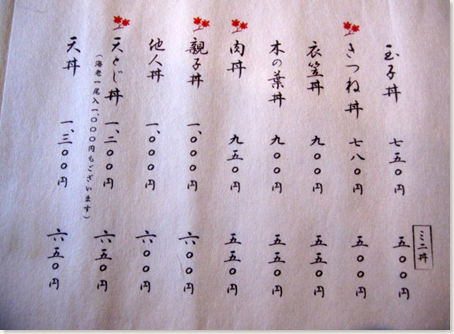 ミニ丼
玉子丼 七五〇円 五〇〇円
きつね丼 七八〇円 五〇〇円
衣笠丼 九〇〇円 五五〇円
木の葉丼 九〇〇円 五五〇円
肉丼 九五〇円 五五〇円
親子丼 一、〇〇〇円 六〇〇円
他人丼 一、〇〇〇円 六〇〇円
天とじ丼 一、二〇〇円 六五〇円
（海老一尾入一、〇〇〇円もございます）
天丼 一、三〇〇円 六五〇円